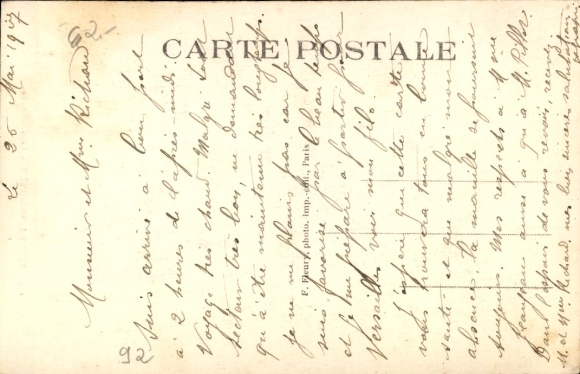 CARTE POSTALE
F. Fleury, photo. imp.-édit., Paris
92
92
le 26 Mai 1917
Monsieur et Mme Richard
Suis arrivé à bon port
à 2 heures de l'après-midi.
Voyage très chaud. Malgré tout
retour très bon, ne demandant
qu'à être maintenu très longtemps.
Je ne me plains pas car je
suis favorisé par le beau temps
et je me prépare à partir pour
Versailles voir mon fils.
J'espère que cette carte
vous trouvera tous en bonne
santé et que malgré mon
absence, la manille se poursuit
toujours. Mes respects à Mme
aussi qu'à M. Pille.
Dans l'espoir de vous revoir, recevez
M. et Mme Richard, mes bien sincères salutations